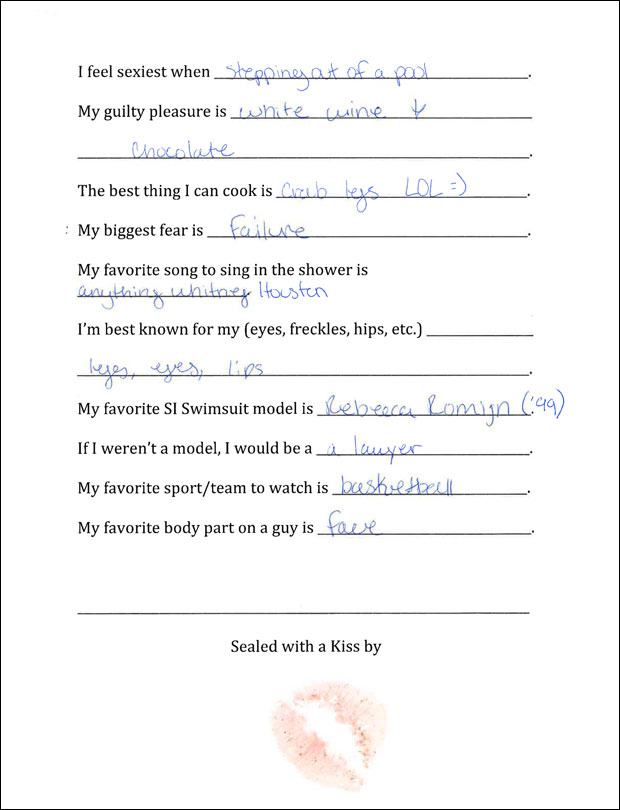 I feel sexiest when stepping out of a pool.
My guilty pleasure is white wine &
Chocolate.
The best thing I can cook is Crab legs LOL =)
My biggest fear is Failure.
My favorite song to sing in the shower is
anything whitney Houston
I'm best known for my (eyes, freckles, hips, etc.)
legs, eyes, lips.
My favorite SI Swimsuit model is Rebecca Romijn ('99)
If I weren't a model, I would be a a lawyer.
My favorite sport/team to watch is basketball.
My favorite body part on a guy is face.
Sealed with a Kiss by